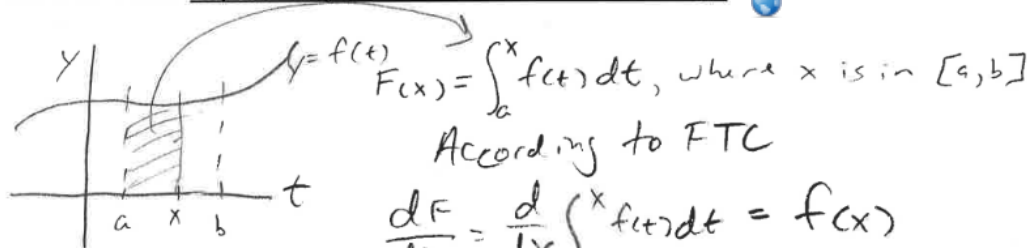 y
y = f(t)
F(x) = ∫ₐˣ f(t) dt, where x is in [a,b]
According to FTC
t
a x b
dF = d ∫ˣ f(t) dt = f(x)